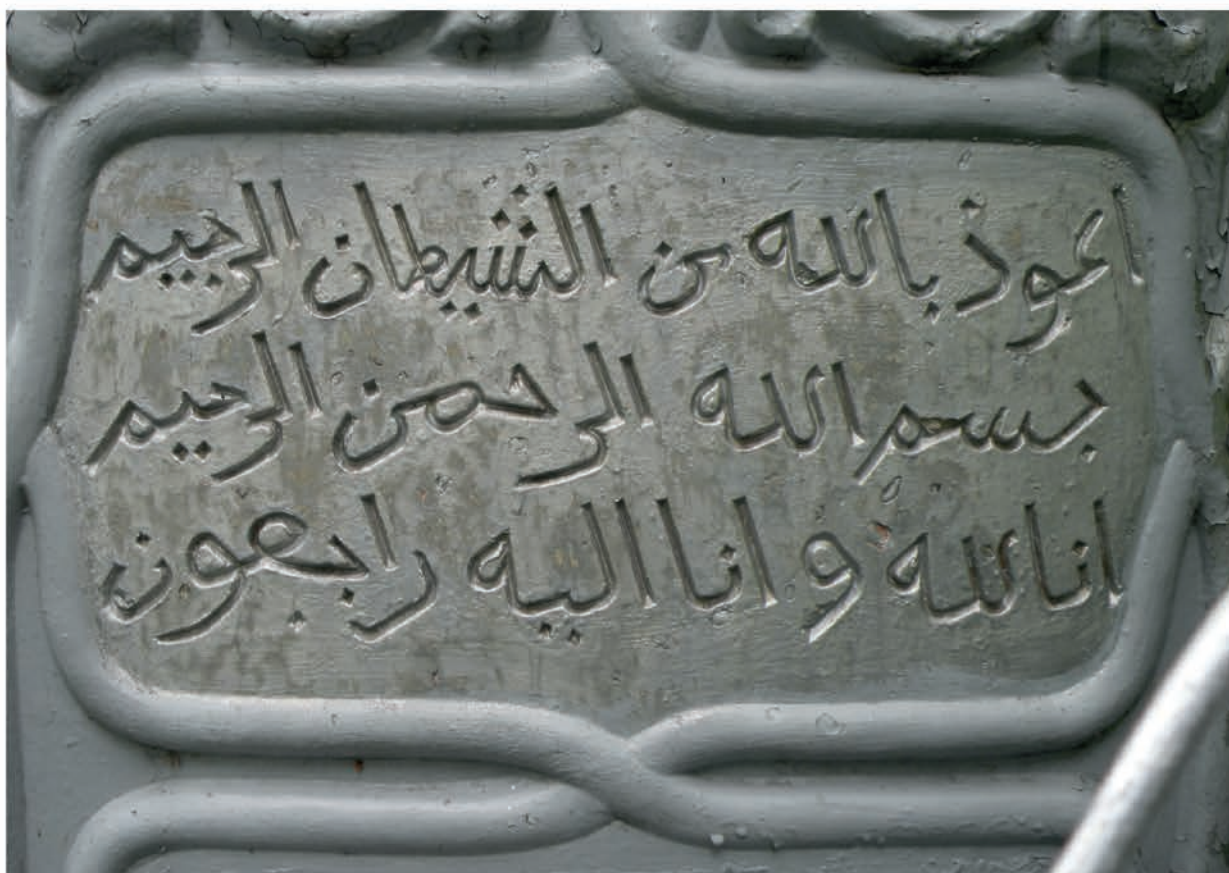 اعوذ بالله من الشيطان الرجيم
بسم الله الرحمن الرحيم
انا لله و انا اليه راجعون